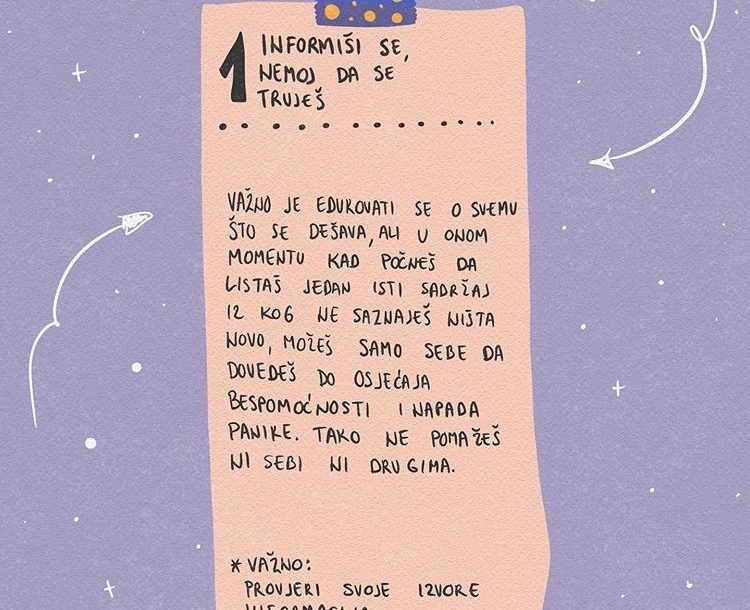 1 INFORMIŠI SE,
NEMOJ DA SE
TRUJEŠ
VAŽNO JE EDUKOVATI SE O SVEMU
ŠTO SE DEŠAVA, ALI U ONOM
MOMENTU KAD POČNEŠ DA
LISTAŠ JEDAN ISTI SADRŽAJ
IZ KOG NE SAZNAJEŠ NIŠTA
NOVO, MOŽEŠ SAMO SEBE DA
DOVEDEŠ DO OSJEĆAJA
BESPOMOĆNOSTI I NAPADA
PANIKE. TAKO NE POMAŽEŠ
NI SEBI NI DRUGIMA.
* VAŽNO:
PROVJERI SVOJE IZVORE